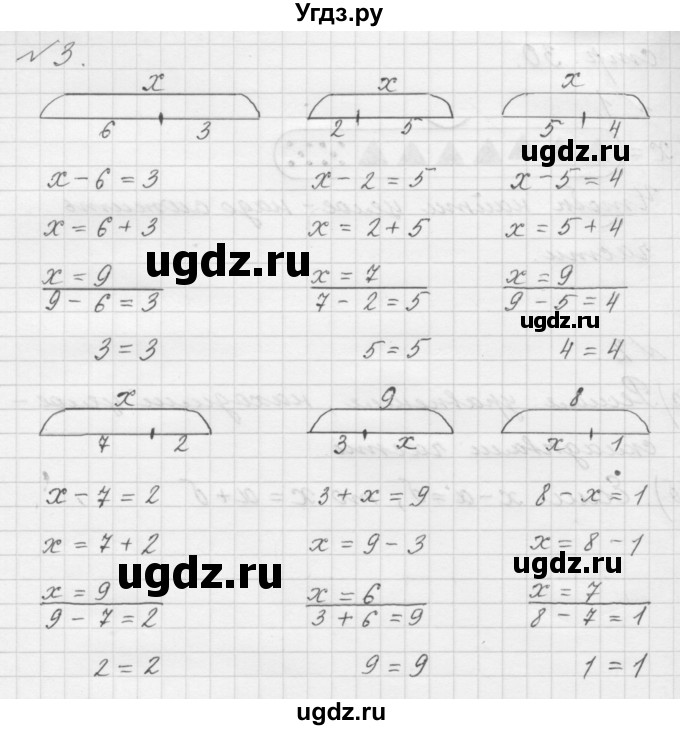 Угдз.ру
№ 3.
x x x
6 3 2 5 5 4
x - 6 = 3 x - 2 = 5 x - 5 = 4
x = 6 + 3 x = 2 + 5 x = 5 + 4
x = 9 x = 7 x = 9
9 - 6 = 3 7 - 2 = 5 9 - 5 = 4
3 = 3 5 = 5 4 = 4
x 9 8
7 2 3 x x 1
x - 7 = 2 3 + x = 9 8 - x = 1
x = 7 + 2 x = 9 - 3 x = 8 - 1
x = 9 x = 6 x = 7
9 - 7 = 2 3 + 6 = 9 8 - 7 = 1
2 = 2 9 = 9 1 = 1
ugdz.ru
ugdz.ru
ugdz.ru
ugdz.ru
ugdz.ru
ugdz.ru